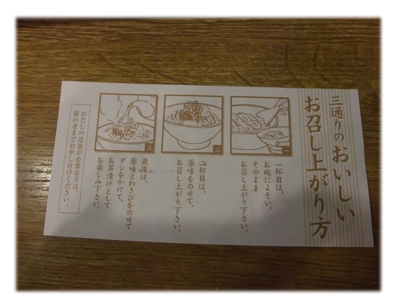 三通りのおいしい
お召し上がり方
一杯目は、
お碗によそい、
そのまま
お召し上がり下さい。
二杯目は、
薬味をのせて、
お召し上がり下さい。
最後は、
薬味とわさびをのせて
ダシをかけて、
お茶漬けとして
お楽しみ下さい。
おだしの追加が必要な方は、
係の者までお申し付けください。